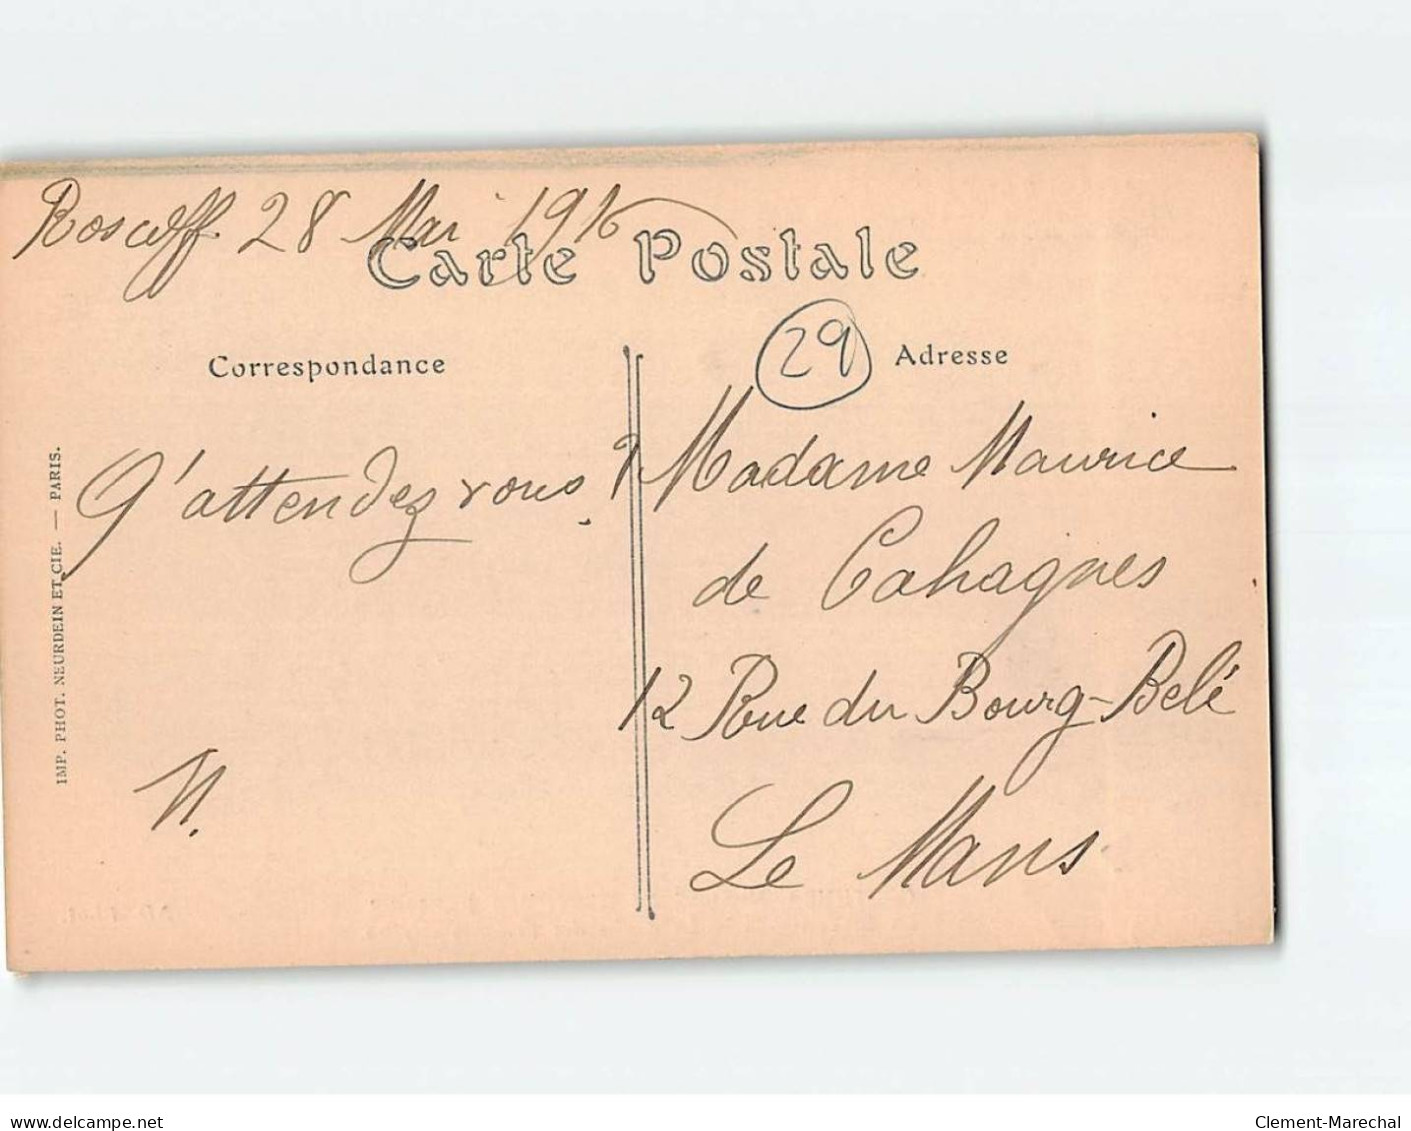 Roscoff 28 Mai 1916
Carte Postale
Correspondance
29
Adresse
IMP. PHOT. NEURDEIN ET CIE. — PARIS.
J'attendez vous. ?
N.
Madame Maurice
de Cahagnes
12 Rue du Bourg-Belé
Le Mans
www.delcampe.net
Clement-Marechal